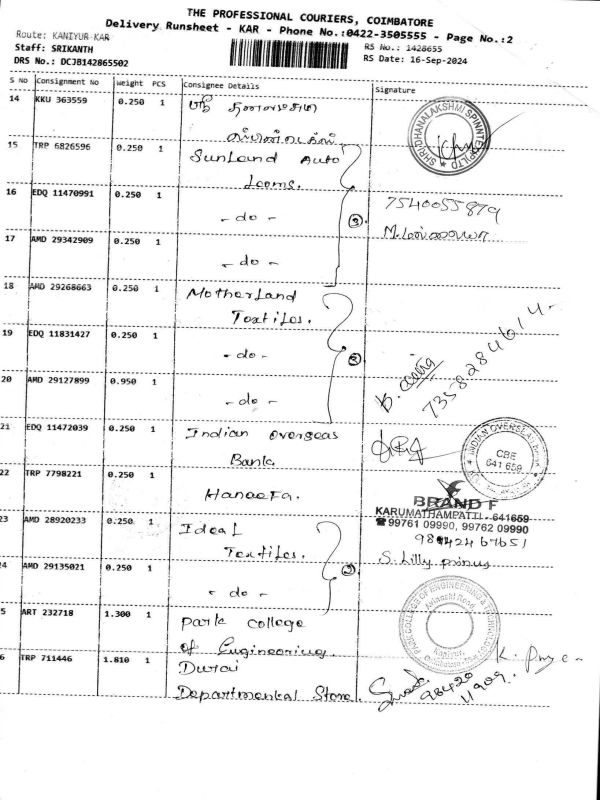 THE PROFESSIONAL COURIERS, COIMBATORE
Delivery Runsheet - KAR - Phone No.:0422-3505555 - Page No.:2
Route: KANIYUR-KAR
Staff: SRIKANTH
DRS No.: DCJB142865502
RS No.: 1428655
RS Date: 16-Sep-2024
S No Consignment No Weight PCS Consignee Details Signature
14 KKU 363559 0.250 1
SHRI DHANALAKSHMI SPINNTEX (P) LTD
15 TRP 6826596 0.250 1 SunLand Auto
Looms.
16 EDQ 11470991 0.250 1 - do - 3. 7540055879
17 AMD 29342909 0.250 1 - do -
18 AMD 29268663 0.250 1 Motherland
Textiles.
19 EDQ 11831427 0.250 1 - do -
7358284614
20 AMD 29127899 0.950 1 - do -
21 EDQ 11472039 0.250 1 Indian overseas
Bank.
INDIAN OVERSEAS BANK
CBE
641 659
22 TRP 7798221 0.250 1 HaneeFa.
BRAND F
KARUMATHAMPATTI - 641659
☎ 99761 09990, 99762 09990
23 AMD 28920233 0.250 1 Ideal
Textiles.
9842467651
S. Lilly
24 AMD 29135021 0.250 1 - do -
5 ART 232718 1.300 1 Park college
of Engineering.
PARK COLLEGE OF ENGINEERING & TECHNOLOGY
6 TRP 711446 1.810 1 Durai
Departmental Store.
98420
11909.